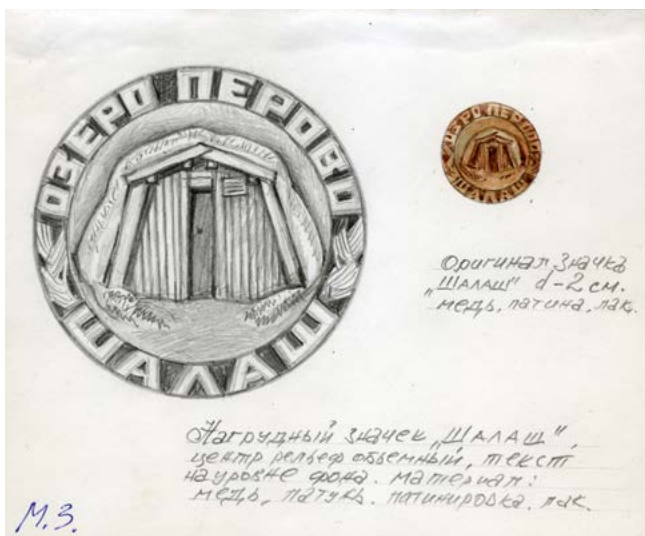 ОЗЕРО ПЕРОВО
ШАЛАШ
ОЗЕРО ПЕРОВО
ШАЛАШ
Оригинал значка
„ШАЛАШ" d-2 см.
медь, патина, лак.
Нагрудный значек „ШАЛАШ",
центр рельеф объемный, текст
на уровне фона. материал:
медь, латунь. патинировка. лак.
М.З.